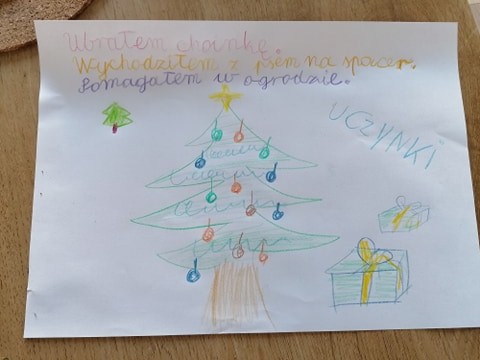 Ubrałem choinkę.
Wychodziłem z psem na spacer.
Pomagałem w ogrodzie.
UCZYNKI